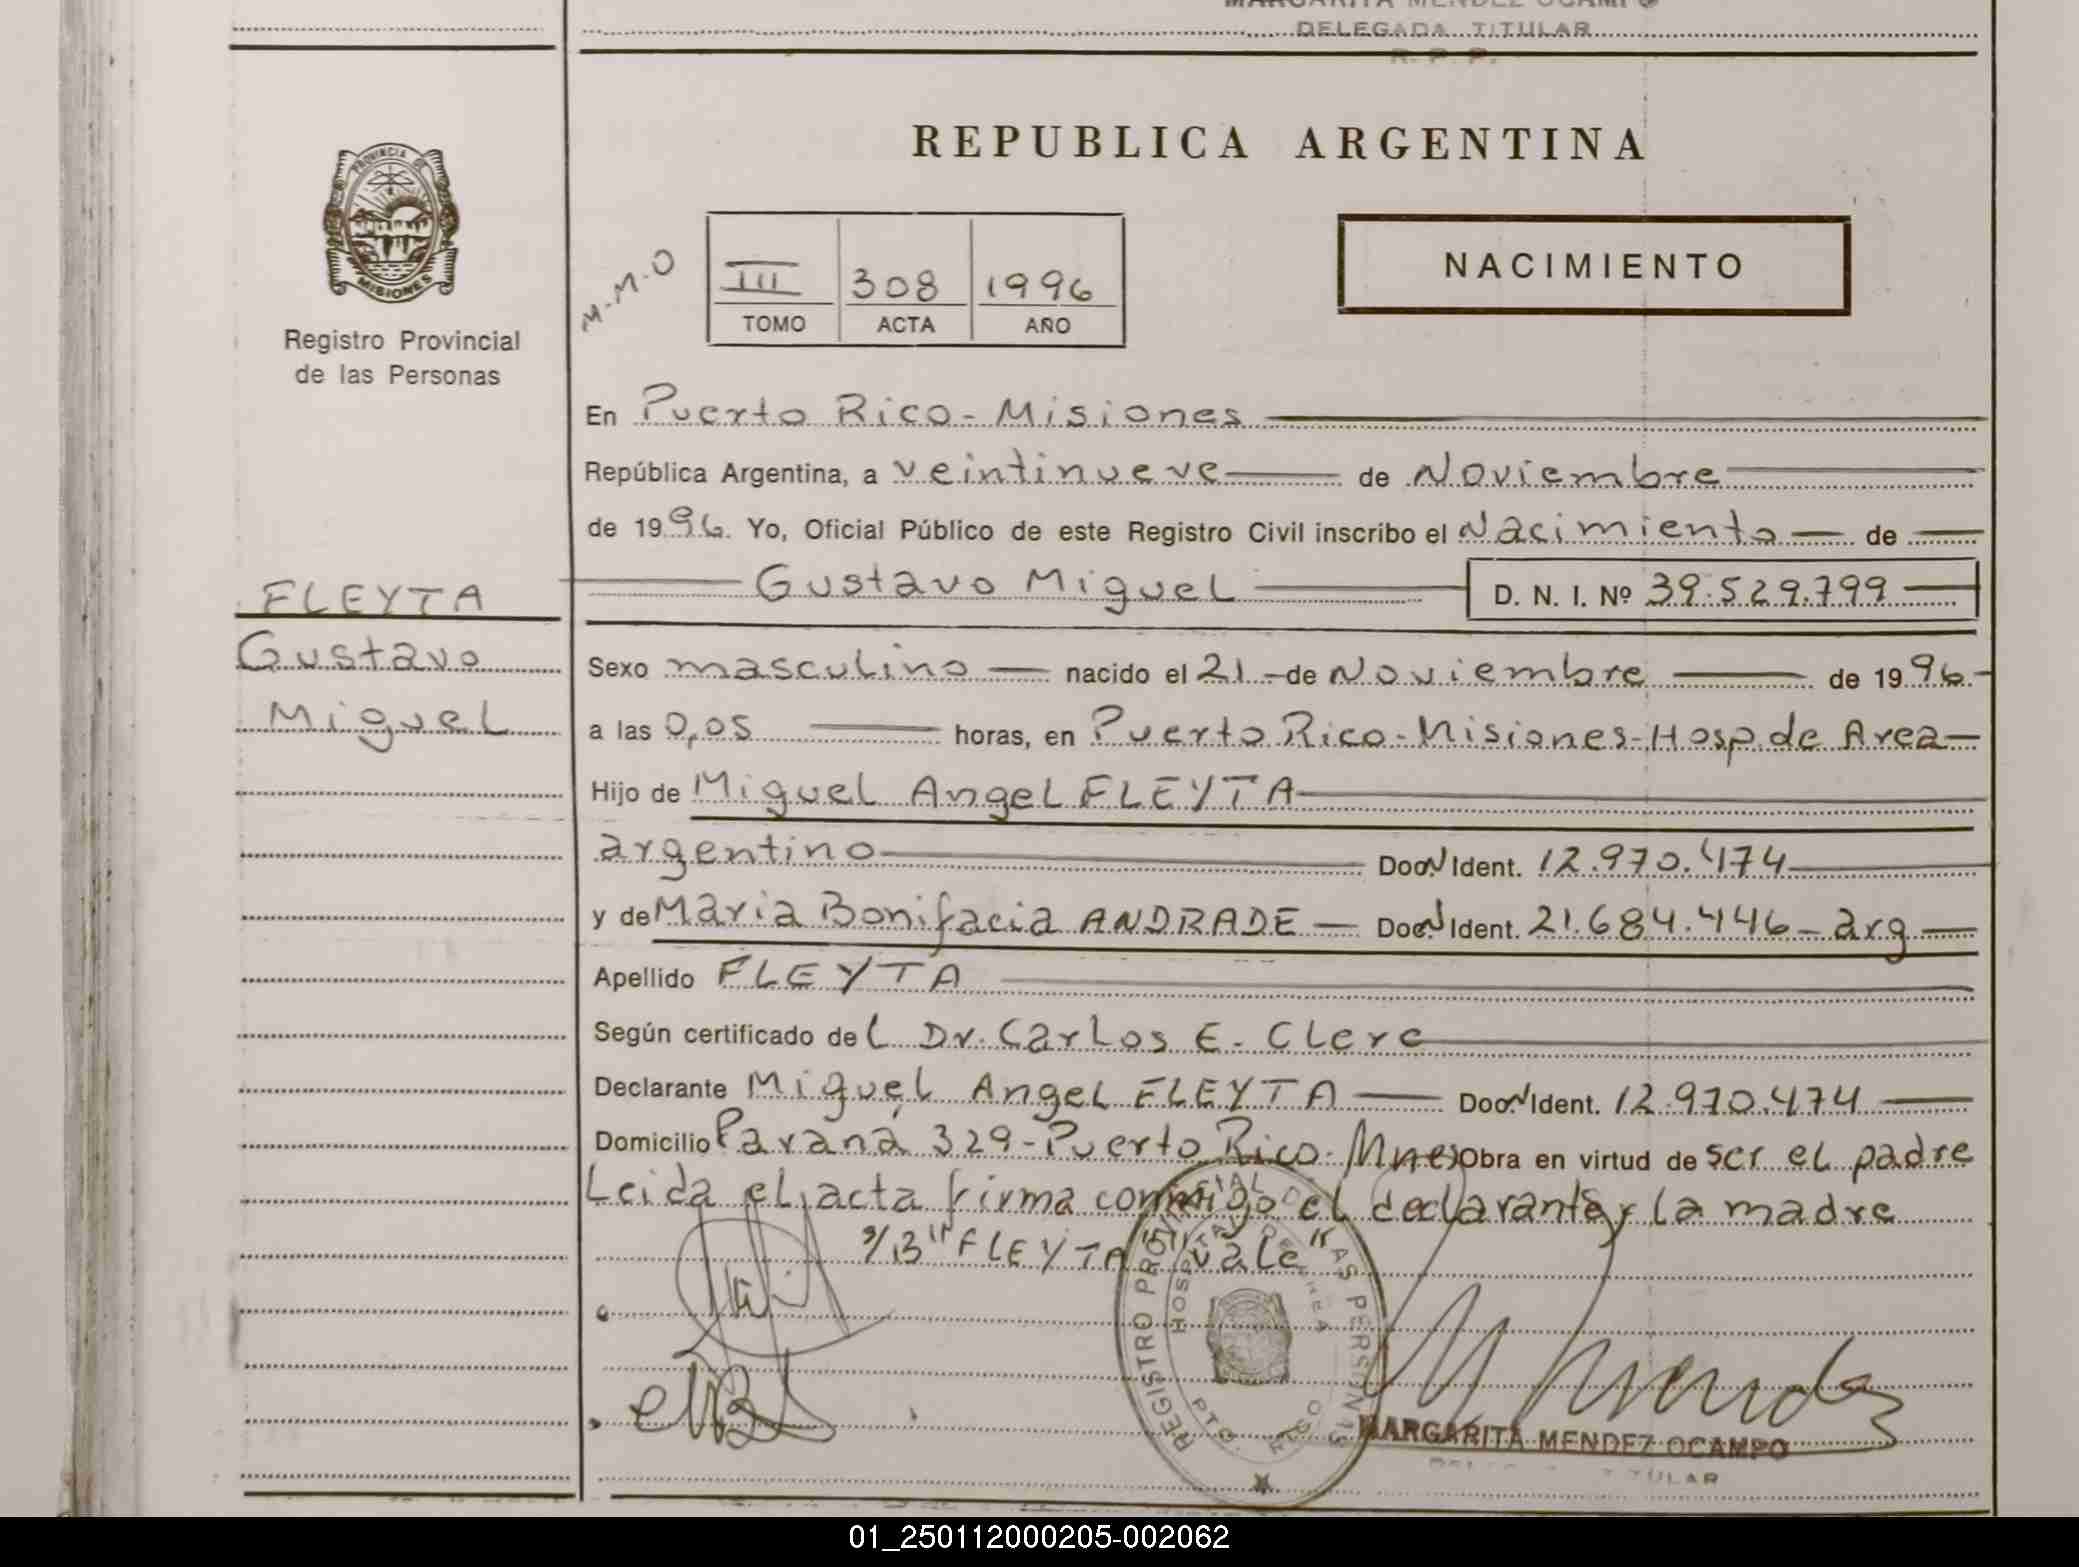 MARGARITA MENDEZ OCAMPO
DELEGADA TITULAR
R. P. P.
PROVINCIA DE
MISIONES
Registro Provincial
de las Personas
REPUBLICA ARGENTINA
M.M.O
III 308 1996
TOMO ACTA AÑO
NACIMIENTO
En Puerto Rico - Misiones
República Argentina, a veintinueve de Noviembre
de 1996. Yo, Oficial Público de este Registro Civil inscribo el Nacimiento de
Gustavo Miguel D. N. I. Nº 39.529.799
FLEYTA
Gustavo
Miguel
Sexo masculino nacido el 21 de Noviembre de 1996
a las 0,05 horas, en Puerto Rico - Misiones - Hosp. de Area
Hijo de Miguel Angel FLEYTA
argentino Doc. N Ident. 12.970.474
y de Maria Bonifacia ANDRADE Doc. N Ident. 21.684.446 - arg
Apellido FLEYTA
Según certificado del Dr. Carlos E. Clerc
Declarante Miguel Angel FLEYTA Doc. N Ident. 12.970.474
Domicilio Paraná 329 - Puerto Rico - Mnes Obra en virtud de ser el padre
Leida el acta firma conmigo el declarante y la madre
s/B "FLEYTA" "vale"
REGISTRO PROVINCIAL DE LAS PERSONAS
HOSPITAL DE AREA
PTO. RICO
MARGARITA MENDEZ OCAMPO
DELEGADA TITULAR
01_250112000205-002062